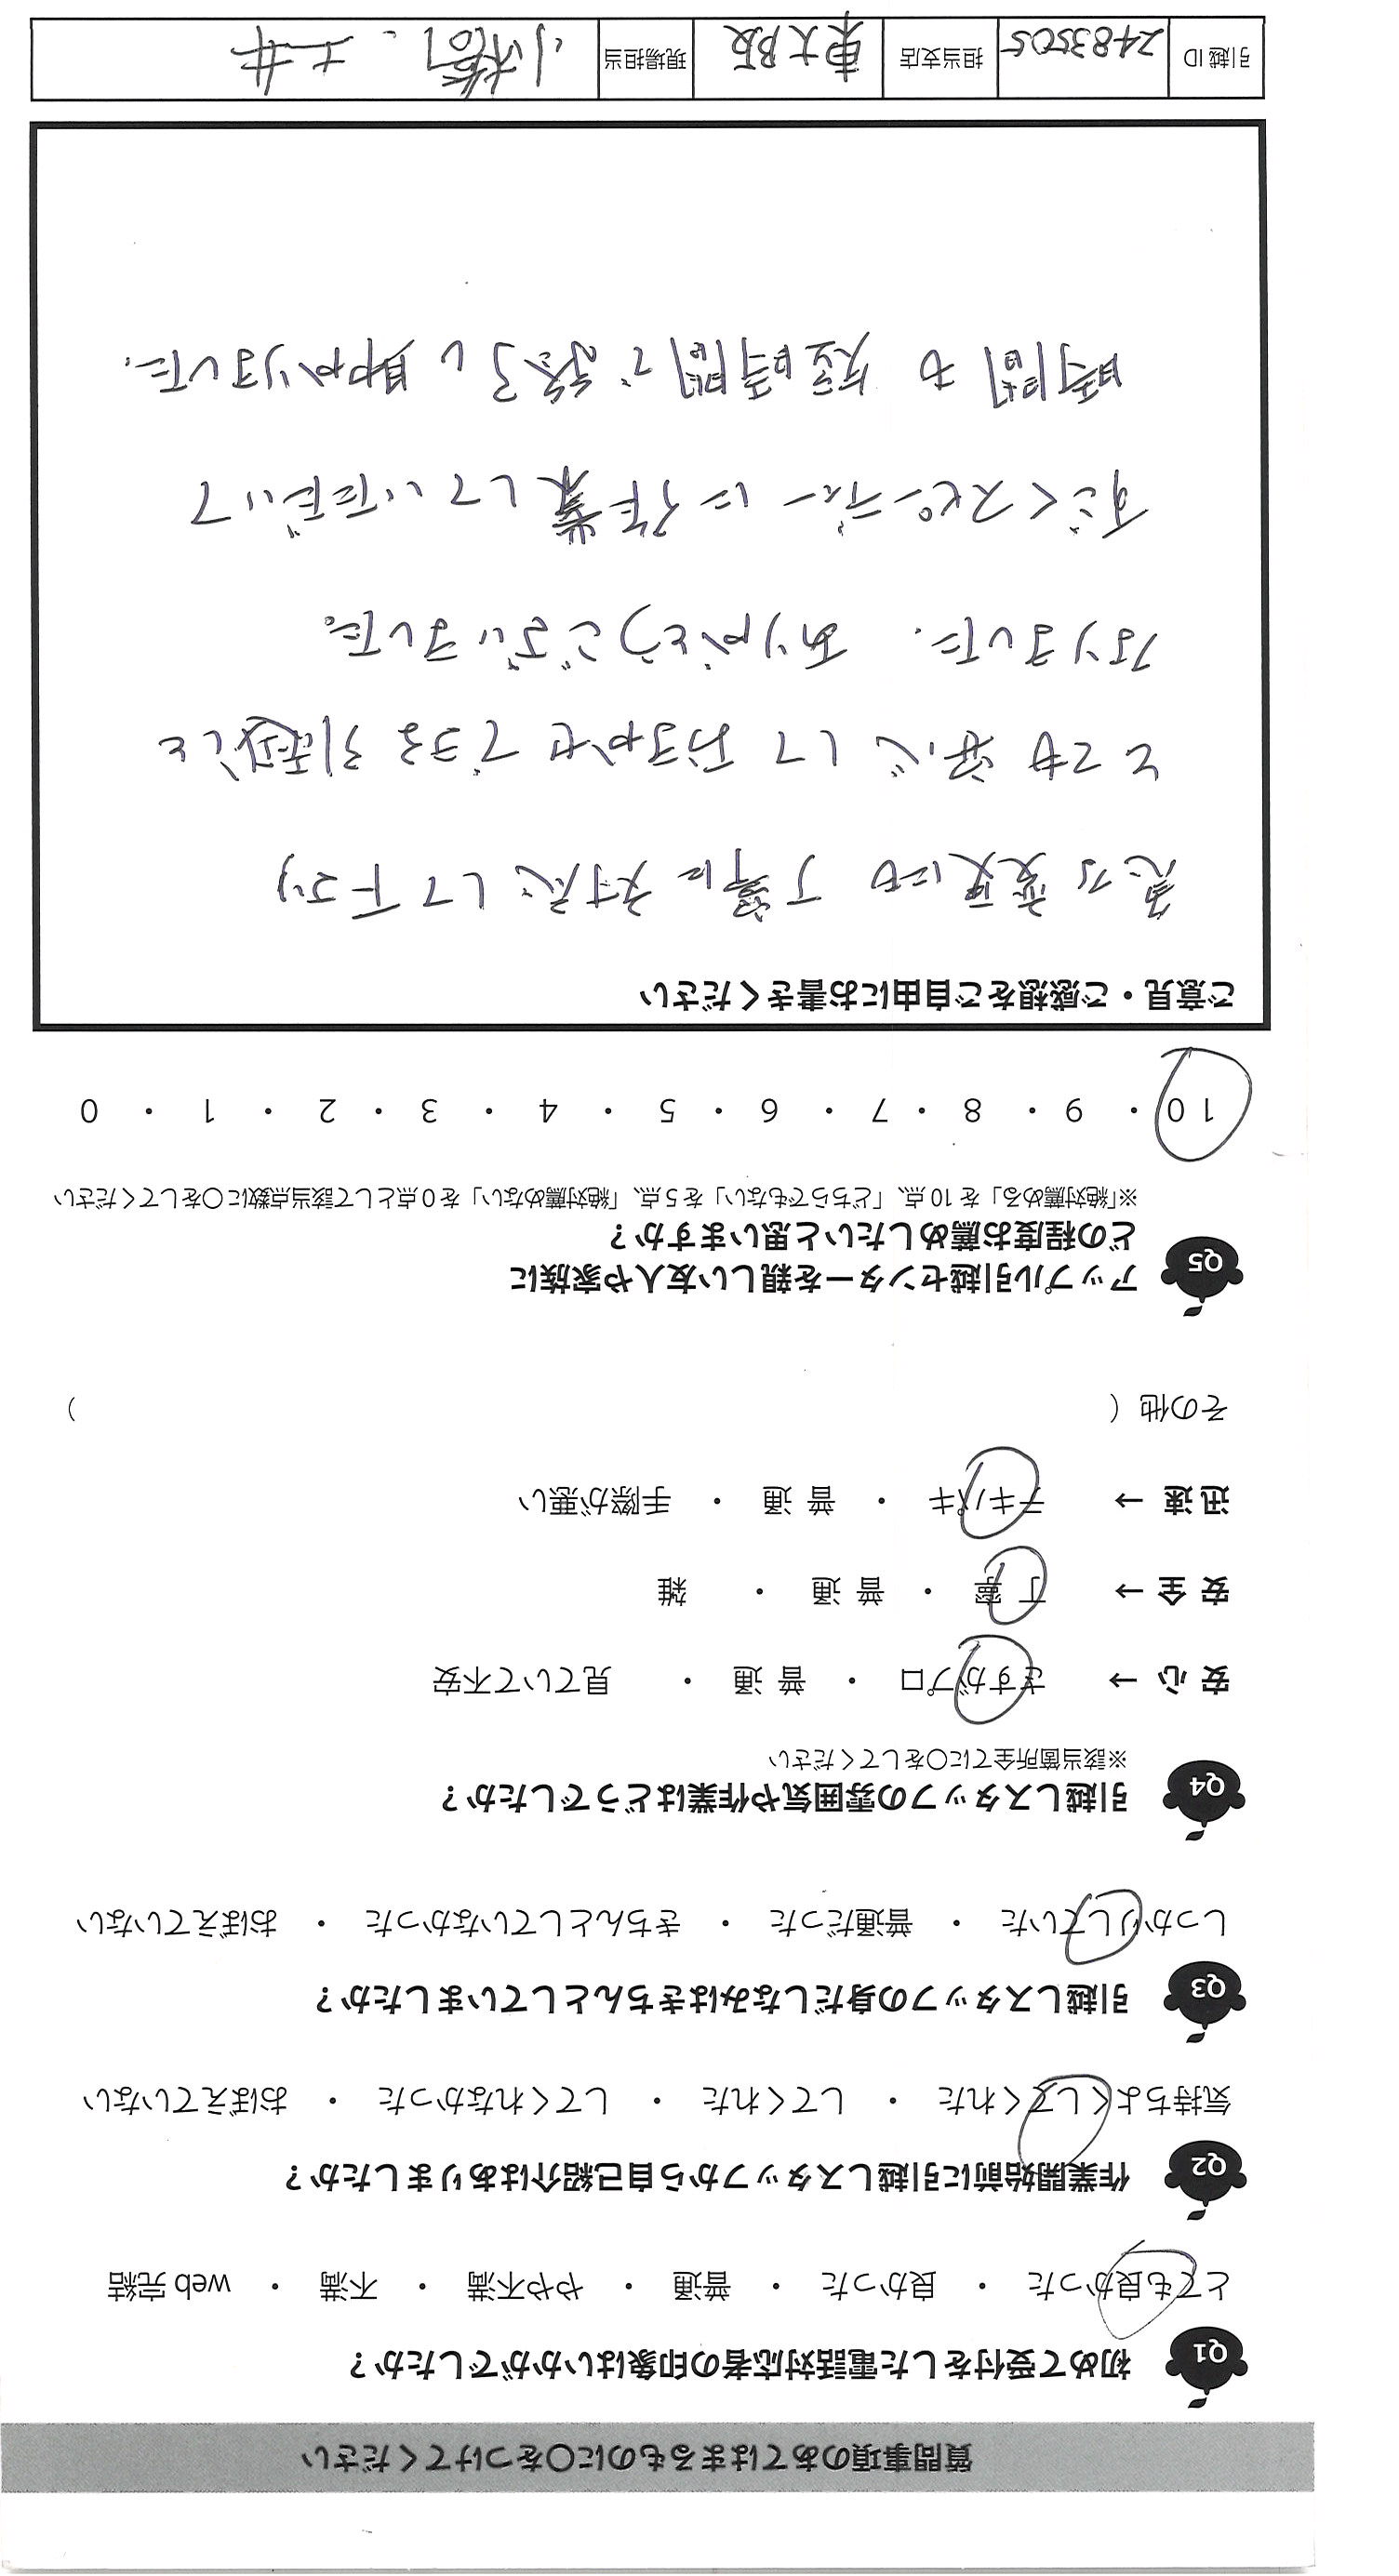 質問事項のあてはまるものに○をつけてください
Q1 初めて受付をした電話対応者の印象はいかがでしたか？
とても良かった ・ 良かった ・ 普通 ・ やや不満 ・ 不満 ・ web 完結
Q2 作業開始前に引越しスタッフから自己紹介はありましたか？
気持ちよくしてくれた ・ してくれた ・ してくれなかった ・ おぼえていない
Q3 引越しスタッフの身だしなみはきちんとしていましたか？
しっかりしていた ・ 普通だった ・ きちんとしていなかった ・ おぼえていない
Q4 引越しスタッフの雰囲気や作業はどうでしたか？
※該当箇所全てに○をしてください
安 心 → さすがプロ ・ 普 通 ・ 見ていて不安
安 全 → 丁 寧 ・ 普 通 ・ 雑
迅 速 → テキパキ ・ 普 通 ・ 手際が悪い
その他（ ）
Q5 アップル引越センターを親しい友人や家族に
どの程度お薦めしたいと思いますか？
※「絶対薦める」を 10 点、「どちらでもない」を 5 点、「絶対薦めない」を 0 点として該当点数に○をしてください
10 ・ 9 ・ 8 ・ 7 ・ 6 ・ 5 ・ 4 ・ 3 ・ 2 ・ 1 ・ 0
ご意見・ご感想をご自由にお書きください
急な変更にも丁寧に対応して下さり
とても安心しておまかせできる引越しと
なりました. ありがとうございました。
すごくスピーディーに作業していただいて
時間も短時間で終了し助かりました.
引越 ID 2483505 担当支店 東大阪 現場担当 小橋、土井